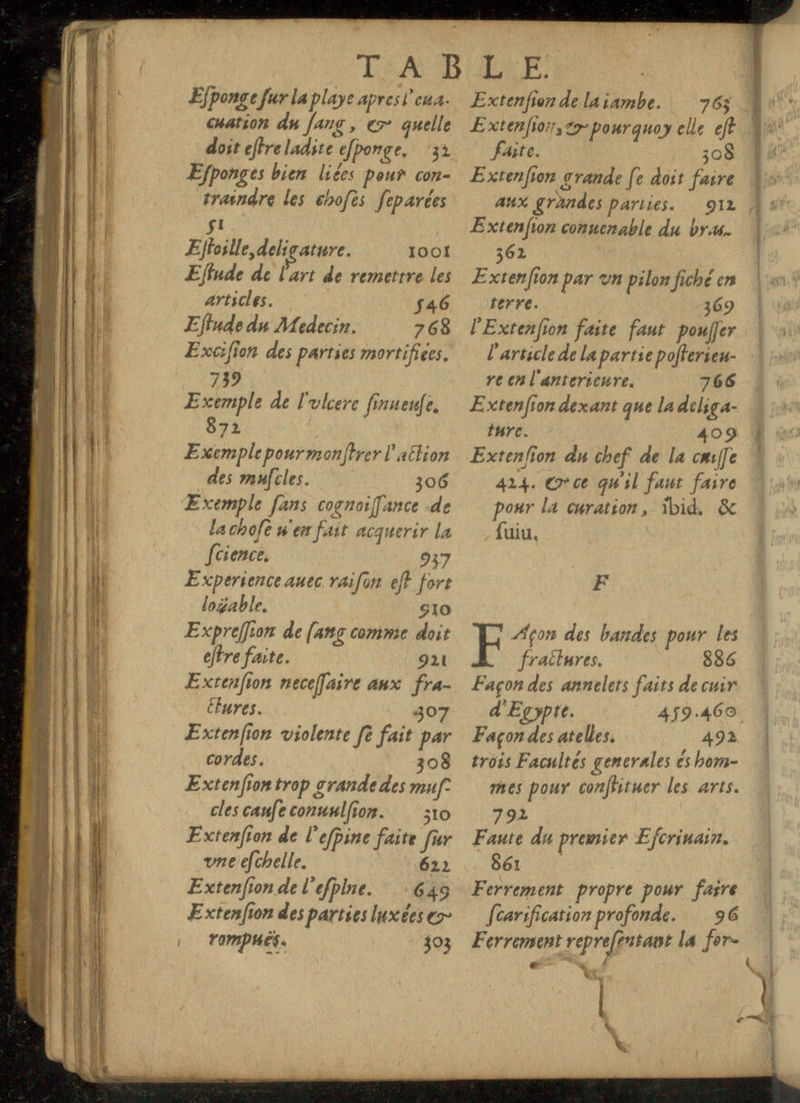 TABLE.
Eſponge ſur la playe apres l'eua-
cuation du ſang, & quelle
doit eſtre ladite eſponge, 32
Eſponges bien liées pour con-
traindre les choſes ſeparées
51
Eſtoille, deligature. 1001
Eſtude de l'art de remettre les
articles. 546
Eſtude du Medecin. 768
Exciſion des parties mortifiées.
739
Exemple de l'vlcere ſinueuſe,
872
Exemple pour monſtrer l'action
des muſcles. 306
Exemple ſans cognoiſſance de
la choſe n'en fait acquerir la
ſcience, 937
Experience auec raiſon eſt fort
loüable. 910
Expreſſion de ſang comme doit
eſtre faite. 921
Extenſion neceſſaire aux fra-
ctures. 307
Extenſion violente ſe fait par
cordes. 308
Extenſion trop grande des muſ-
cles cauſe conuulſion. 310
Extenſion de l'eſpine faite ſur
vne eſchelle. 622
Extenſion de l'eſpine. 649
Extenſion des parties luxées &
rompuës. 303
Extenſion de la iambe. 763
Extenſion, & pourquoy elle eſt
faite. 308
Extenſion grande ſe doit faire
aux grandes parties. 912
Extenſion conuenable du bras.
362
Extenſion par vn pilon fiché en
terre. 369
l'Extenſion faite faut pouſſer
l'article de la partie poſterieu-
re en l'anterieure. 766
Extenſion deuant que la deliga-
ture. 409
Extenſion du chef de la cuiſſe
424. & ce qu'il faut faire
pour la curation, ibid. &
ſuiu,
F
FAçon des bandes pour les
fractures. 886
Façon des annelets faits de cuir
d'Egypte. 459.460
Façon des atelles. 492
trois Facultés generales és hom-
mes pour conſtituer les arts.
792
Faute du premier Eſcriuain.
861
Ferrement propre pour faire
ſcarification profonde. 96
Ferrement repreſentant la for-